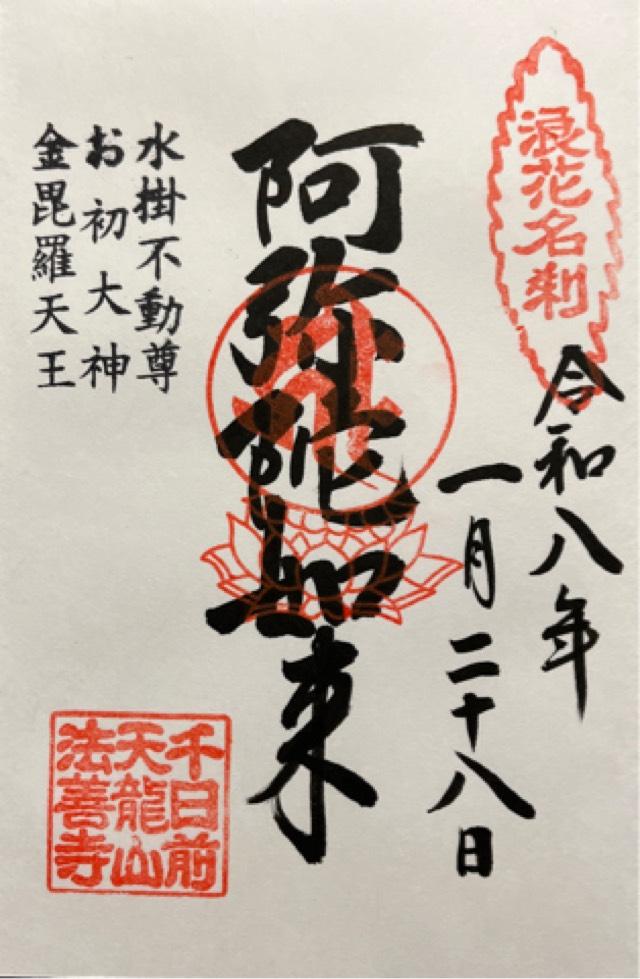 浪花名刹
令和八年
一月二十八日
阿弥陀如来
水掛不動尊
お初大神
金毘羅天王
千日前
天龍山
法善寺